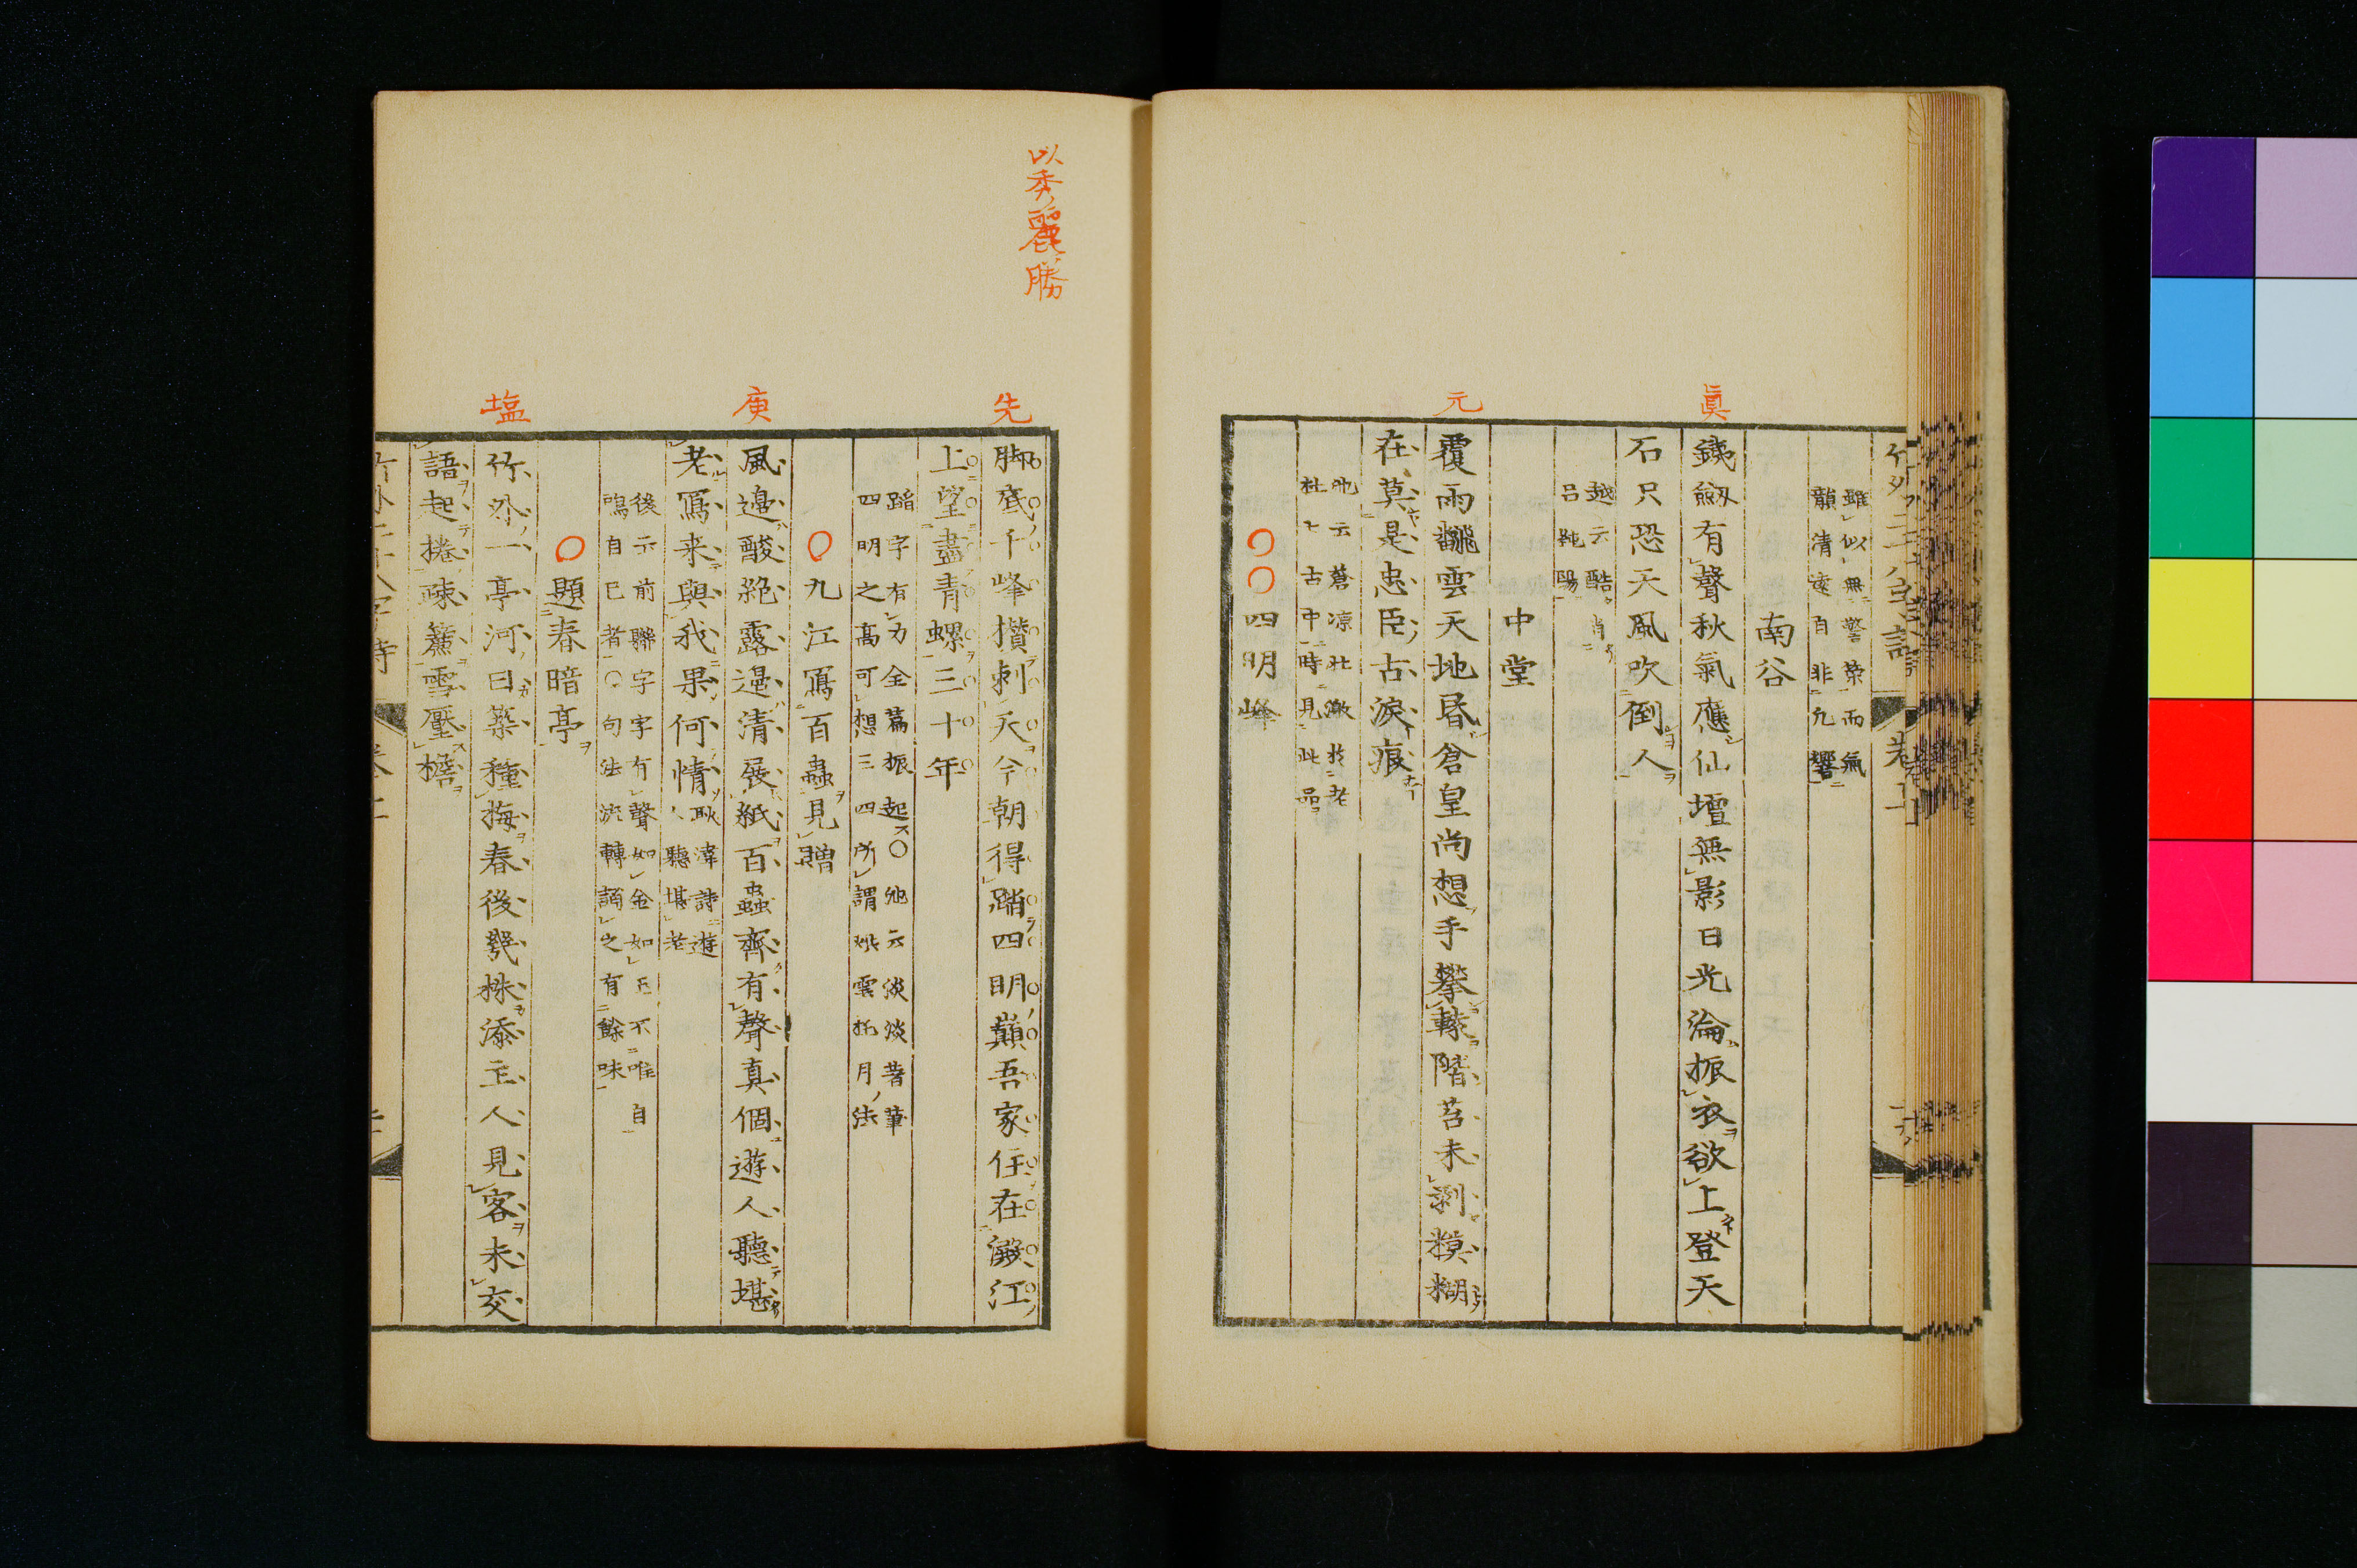 眞
元
雖似無警策而氣
韻清遠自非凡響
南谷
鐵劔有聲秋氣應仙壇無影日光淪振衣欲上登天
石只恐天風吹倒人
越云酷肖
呂純陽
中堂
覆雨飜雲天地昏倉皇尚想手攀轅階苔未剥糢糊
在莫是忠臣古淚痕
地云蒼凉壯激於老
杜七古中時見此品
〇〇四明峰
以秀麗勝
先
庚
塩
脚底千峰攢刺天今朝得踏四明巓吾家住在澱江
上望盡青螺三十年
蹈字有力全篇振起〇地云淡淡着筆
四明之高可想三四所謂烘雲托月法
〇九江寫百蟲見贈
風邊酸絶露邊清展紙百蟲齊有聲真個遊人聽堪
老寫来與我果何情
耿湋詩遊
人聽堪老
後示前聯字字有聲如金如玉不唯自
鳴自已者〇句法流轉誦之有餘味
〇題春暗亭
竹外一亭河日築種梅春後幾株添主人見客未交
語起捲疎簾雪壓檐